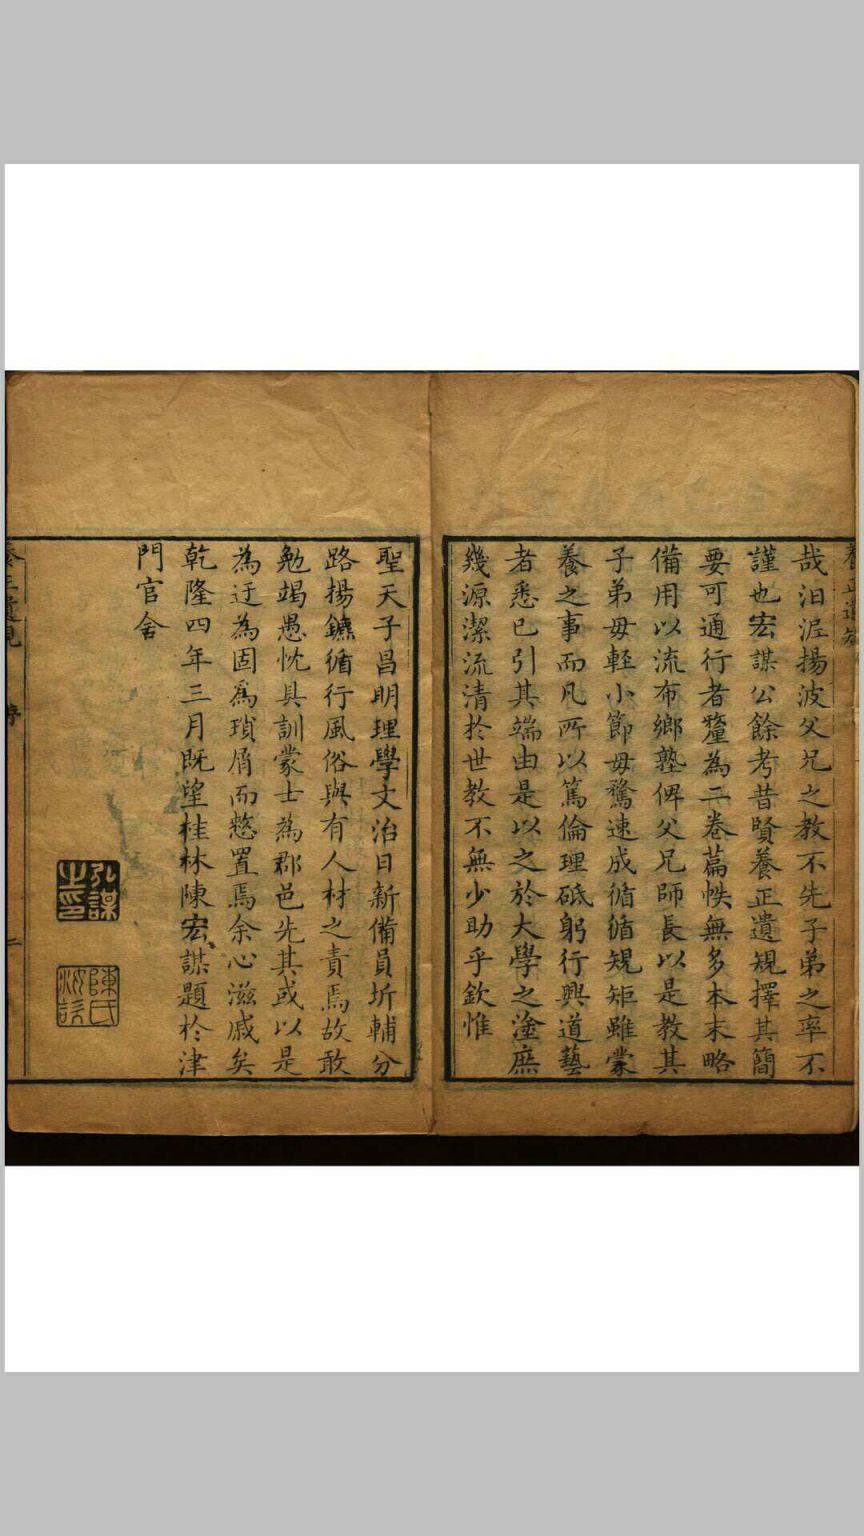 哉汩涊揚波父兄之教不先子弟之率不
謹也宏謀公餘考昔賢養正遺規擇其簡
要可通行者釐為二卷篇帙無多本末略
備用以流布鄉塾俾父兄師長以是教其
子弟毋輕小節毋騖速成循循規矩雖蒙
養之事而凡所以篤倫理砥躬行興道藝
者悉已引其端由是以之於大學之塗庶
幾源潔流清於世教不無少助乎欽惟
聖天子昌明理學文治日新備員圻輔分
路揚鑣循行風俗與有人材之責焉故敢
勉竭愚忱具訓蒙士為郡邑先其或以是
為迂為固為瑣屑而憗置焉余心滋戚矣
乾隆四年三月既望桂林陳宏謀題於津
門官舍
弘謀之印
陳氏